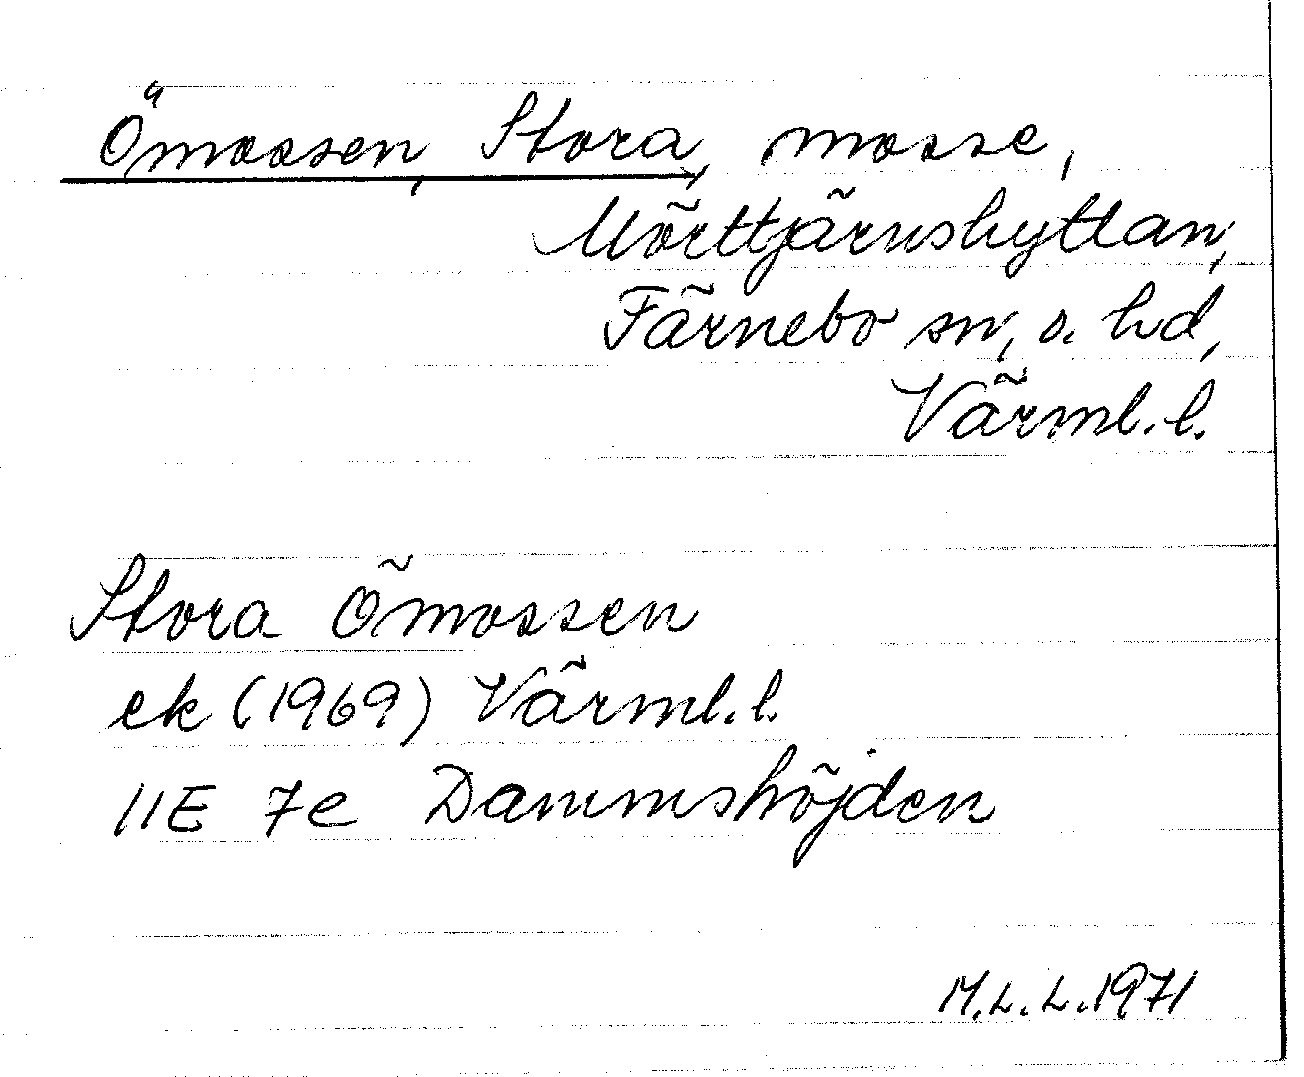 Ömossen, Stora, mosse,
Mörttjärnshyttan,
Färnebo sn, o. hd,
Värml. l.
Stora Ömossen
ek (1969) Värml. l.
11E 7e Dammshöjden
M.L.L. 1971